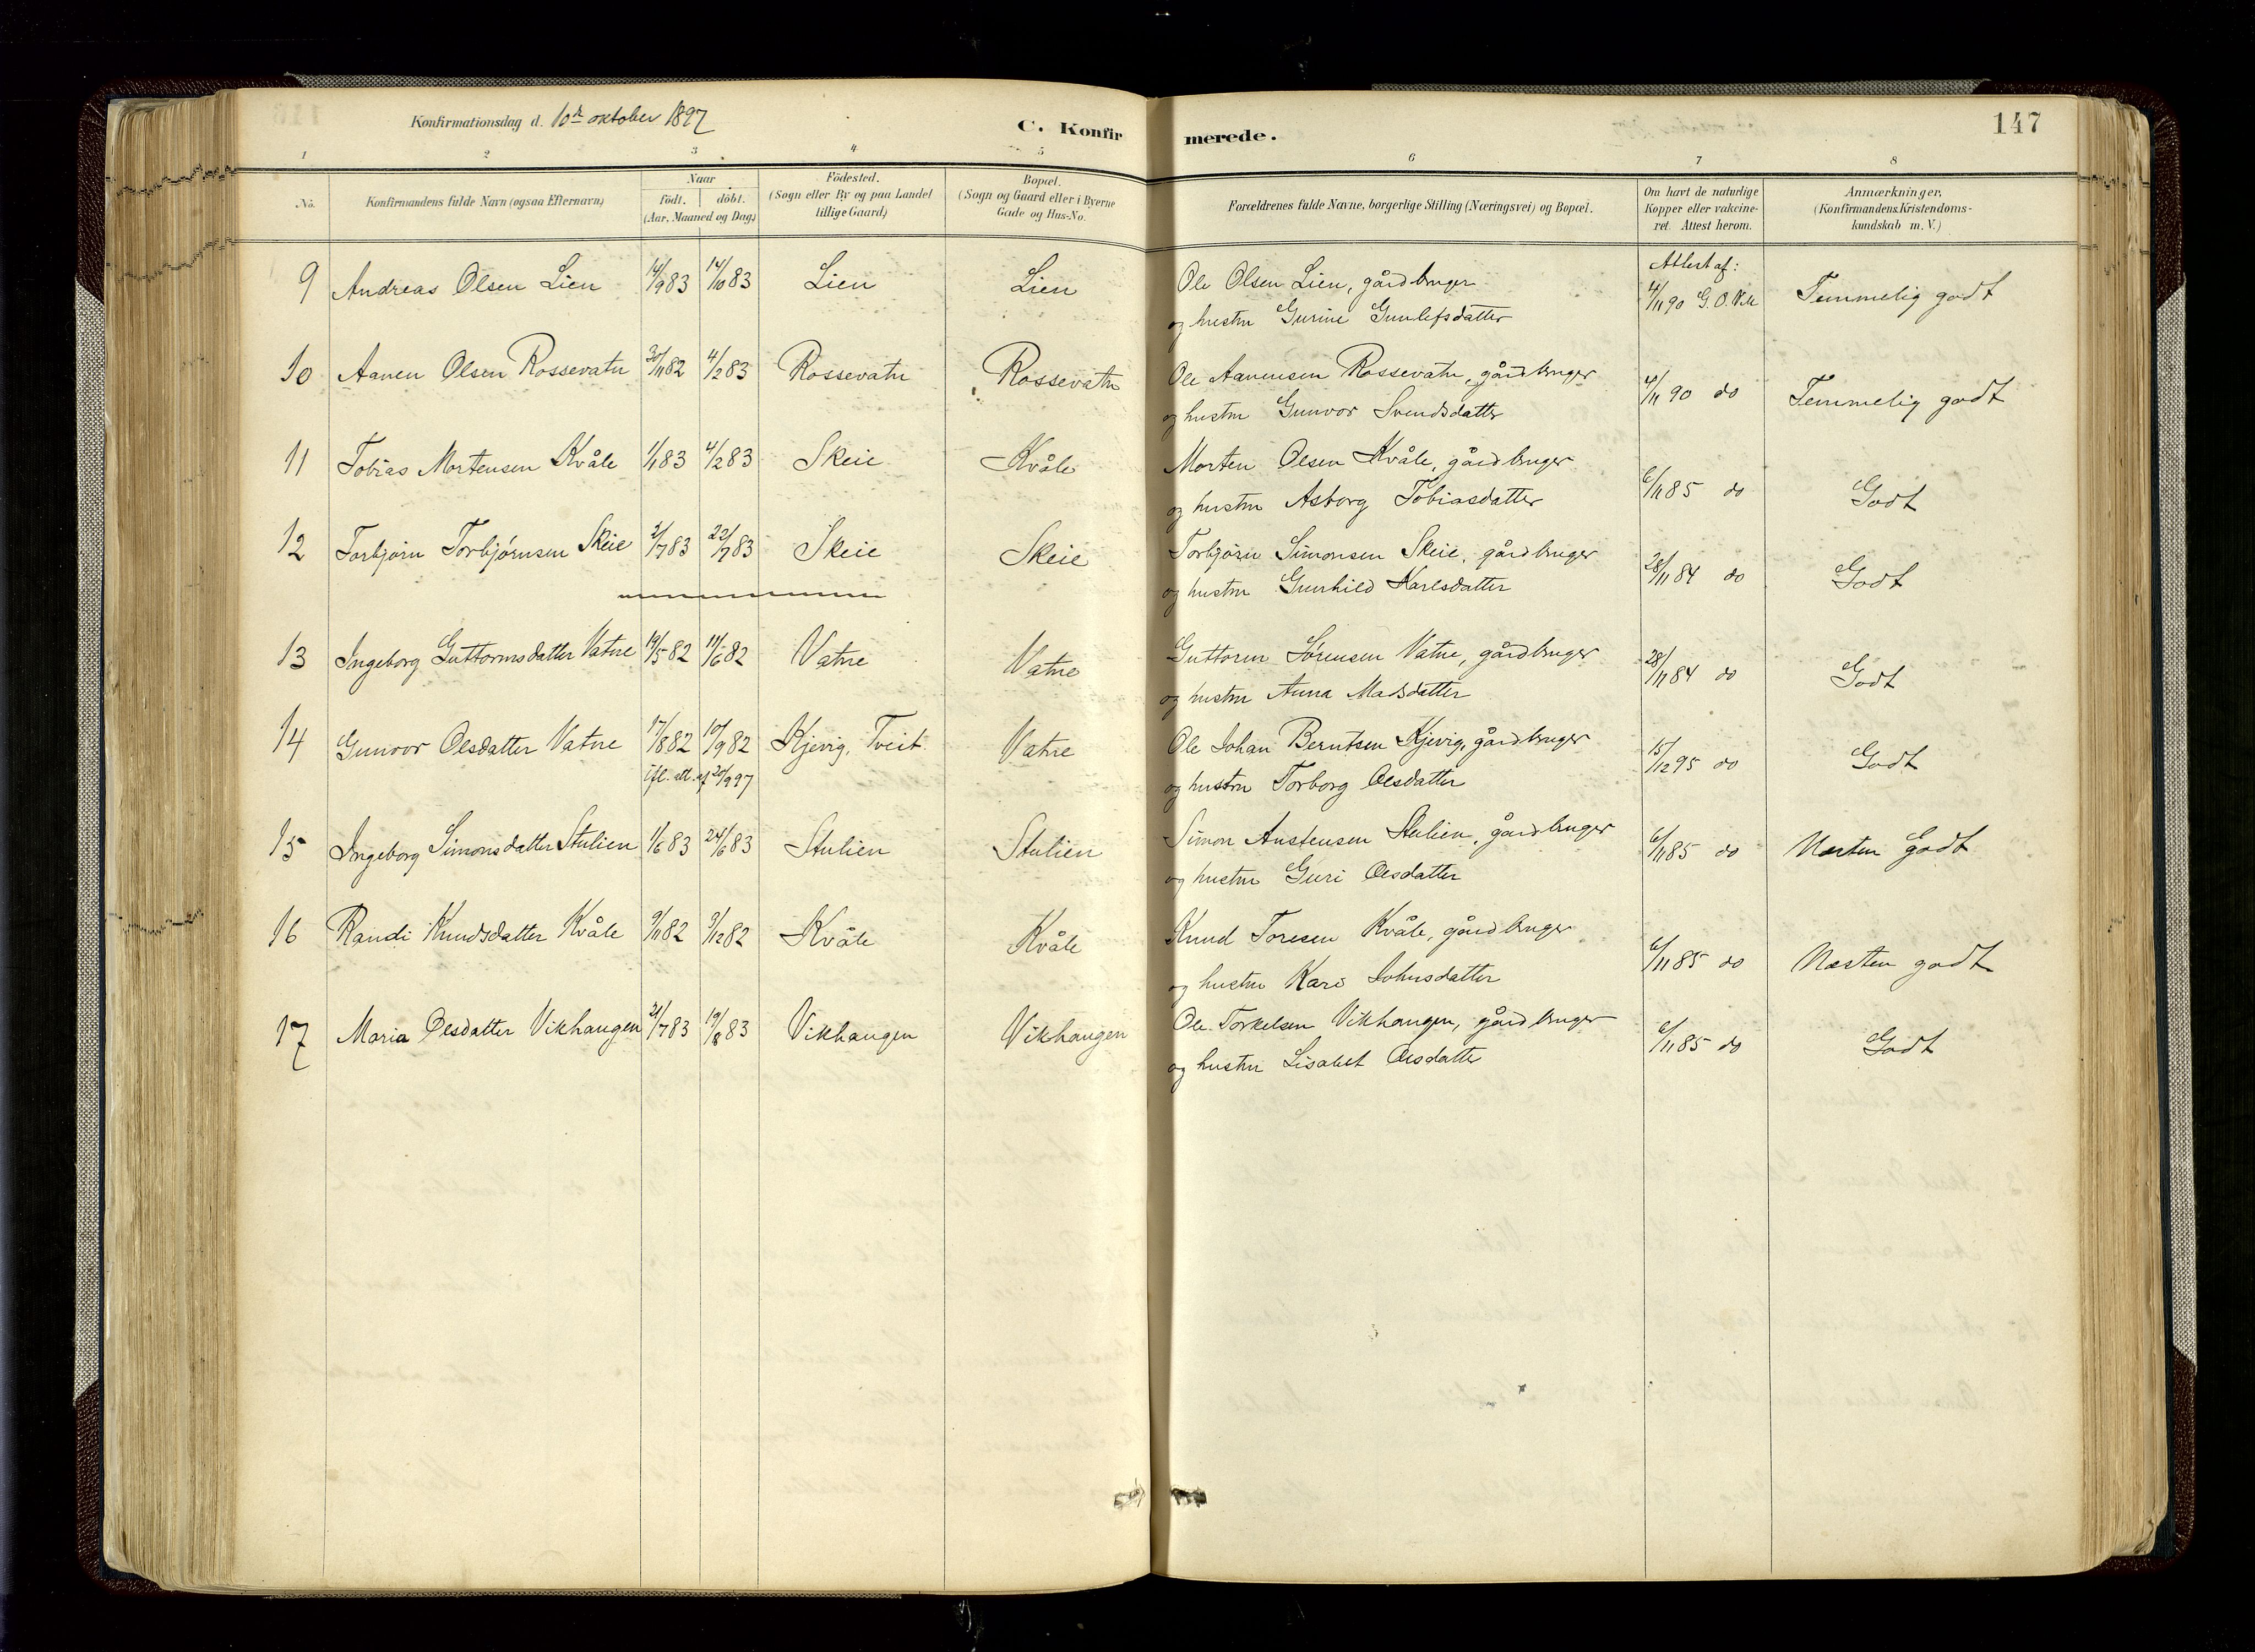 147
Konfirmationsdag d. 10de oktober 1897
C. Konfirmerede.
1 2 3 4 5 6 7 8
No.
Konfirmandens fulde Navn (ogsaa Efternavn)
Naar
født. døbt.
(Aar, Maaned og Dag)
Födested.
(Sogn eller By og paa Landet
tillige Gaard)
Bopæl.
(Sogn og Gaard eller i Byerne
Gade og Hus-No.
Forældrenes fulde Navne, borgerlige Stilling (Næringsvei) og Bopæl.
Om havt de naturlige
Kopper eller vakcine-
ret. Attest herom.
Anmærkninger.
(Konfirmandens Kristendoms-
kundskab m. V.)
Attest af:
9 Andreas Olsen Lien 14/9 83 14/10 83 Lien Lien Ole Olsen Lien, gårdbruger 4/11 90 G. O. Temmelig godt
og hustru Gurine Gunlefsdatter
10 Aanen Olsen Rossevatn 30/11 82 4/2 83 Rossevatn Rossevatn Ole Aanensen Rossevatn, gårdbruger 4/11 90 do Temmelig godt
og hustru Gunvor Svendsdatter
11 Tobias Mortensen Kvåle 1/1 83 4/2 83 Skeie Kvåle Morten Olsen Kvåle, gårdbruger 6/11 85 do Godt
og hustru Asborg Tobiasdatter
12 Torbjørn Torbjørnsen Skeie 2/7 83 22/7 83 Skeie Skeie Torbjørn Simonsen Skeie, gårdbruger 28/11 84 do Godt
og hustru Gunhild Karlsdatter
13 Ingeborg Guttormsdatter Vatne 19/5 82 11/6 82 Vatne Vatne Guttorm Sørensen Vatne, gårdbruger 28/11 84 do Godt
og hustru Anna Madsdatter
14 Gunvor Olsdatter Vatne 17/8 82 10/9 82 Kjevig, Tveit Vatne Ole Johan Berntsen Kjevig, gårdbruger 15/12 95 do Godt
ifl. att. af 20/9 97
og hustru Torborg Olsdatter
15 Ingeborg Simonsdatter Stulien 1/6 83 24/6 83 Stulien Stulien Simon Austensen Stulien, gårdbruger 6/11 85 do Næsten godt
og hustru Guri Olsdatter
16 Randi Knudsdatter Kvåle 9/11 82 3/12 82 Kvåle Kvåle Knud Toresen Kvåle, gårdbruger 6/11 85 do Næsten godt
og hustru Kari Johnsdatter
17 Maria Olsdatter Vikhaugen 21/7 83 19/8 83 Vikhaugen Vikhaugen Ole Torkelsen Vikhaugen, gårdbruger 6/11 85 do Godt
og hustru Lisabet Olsdatter